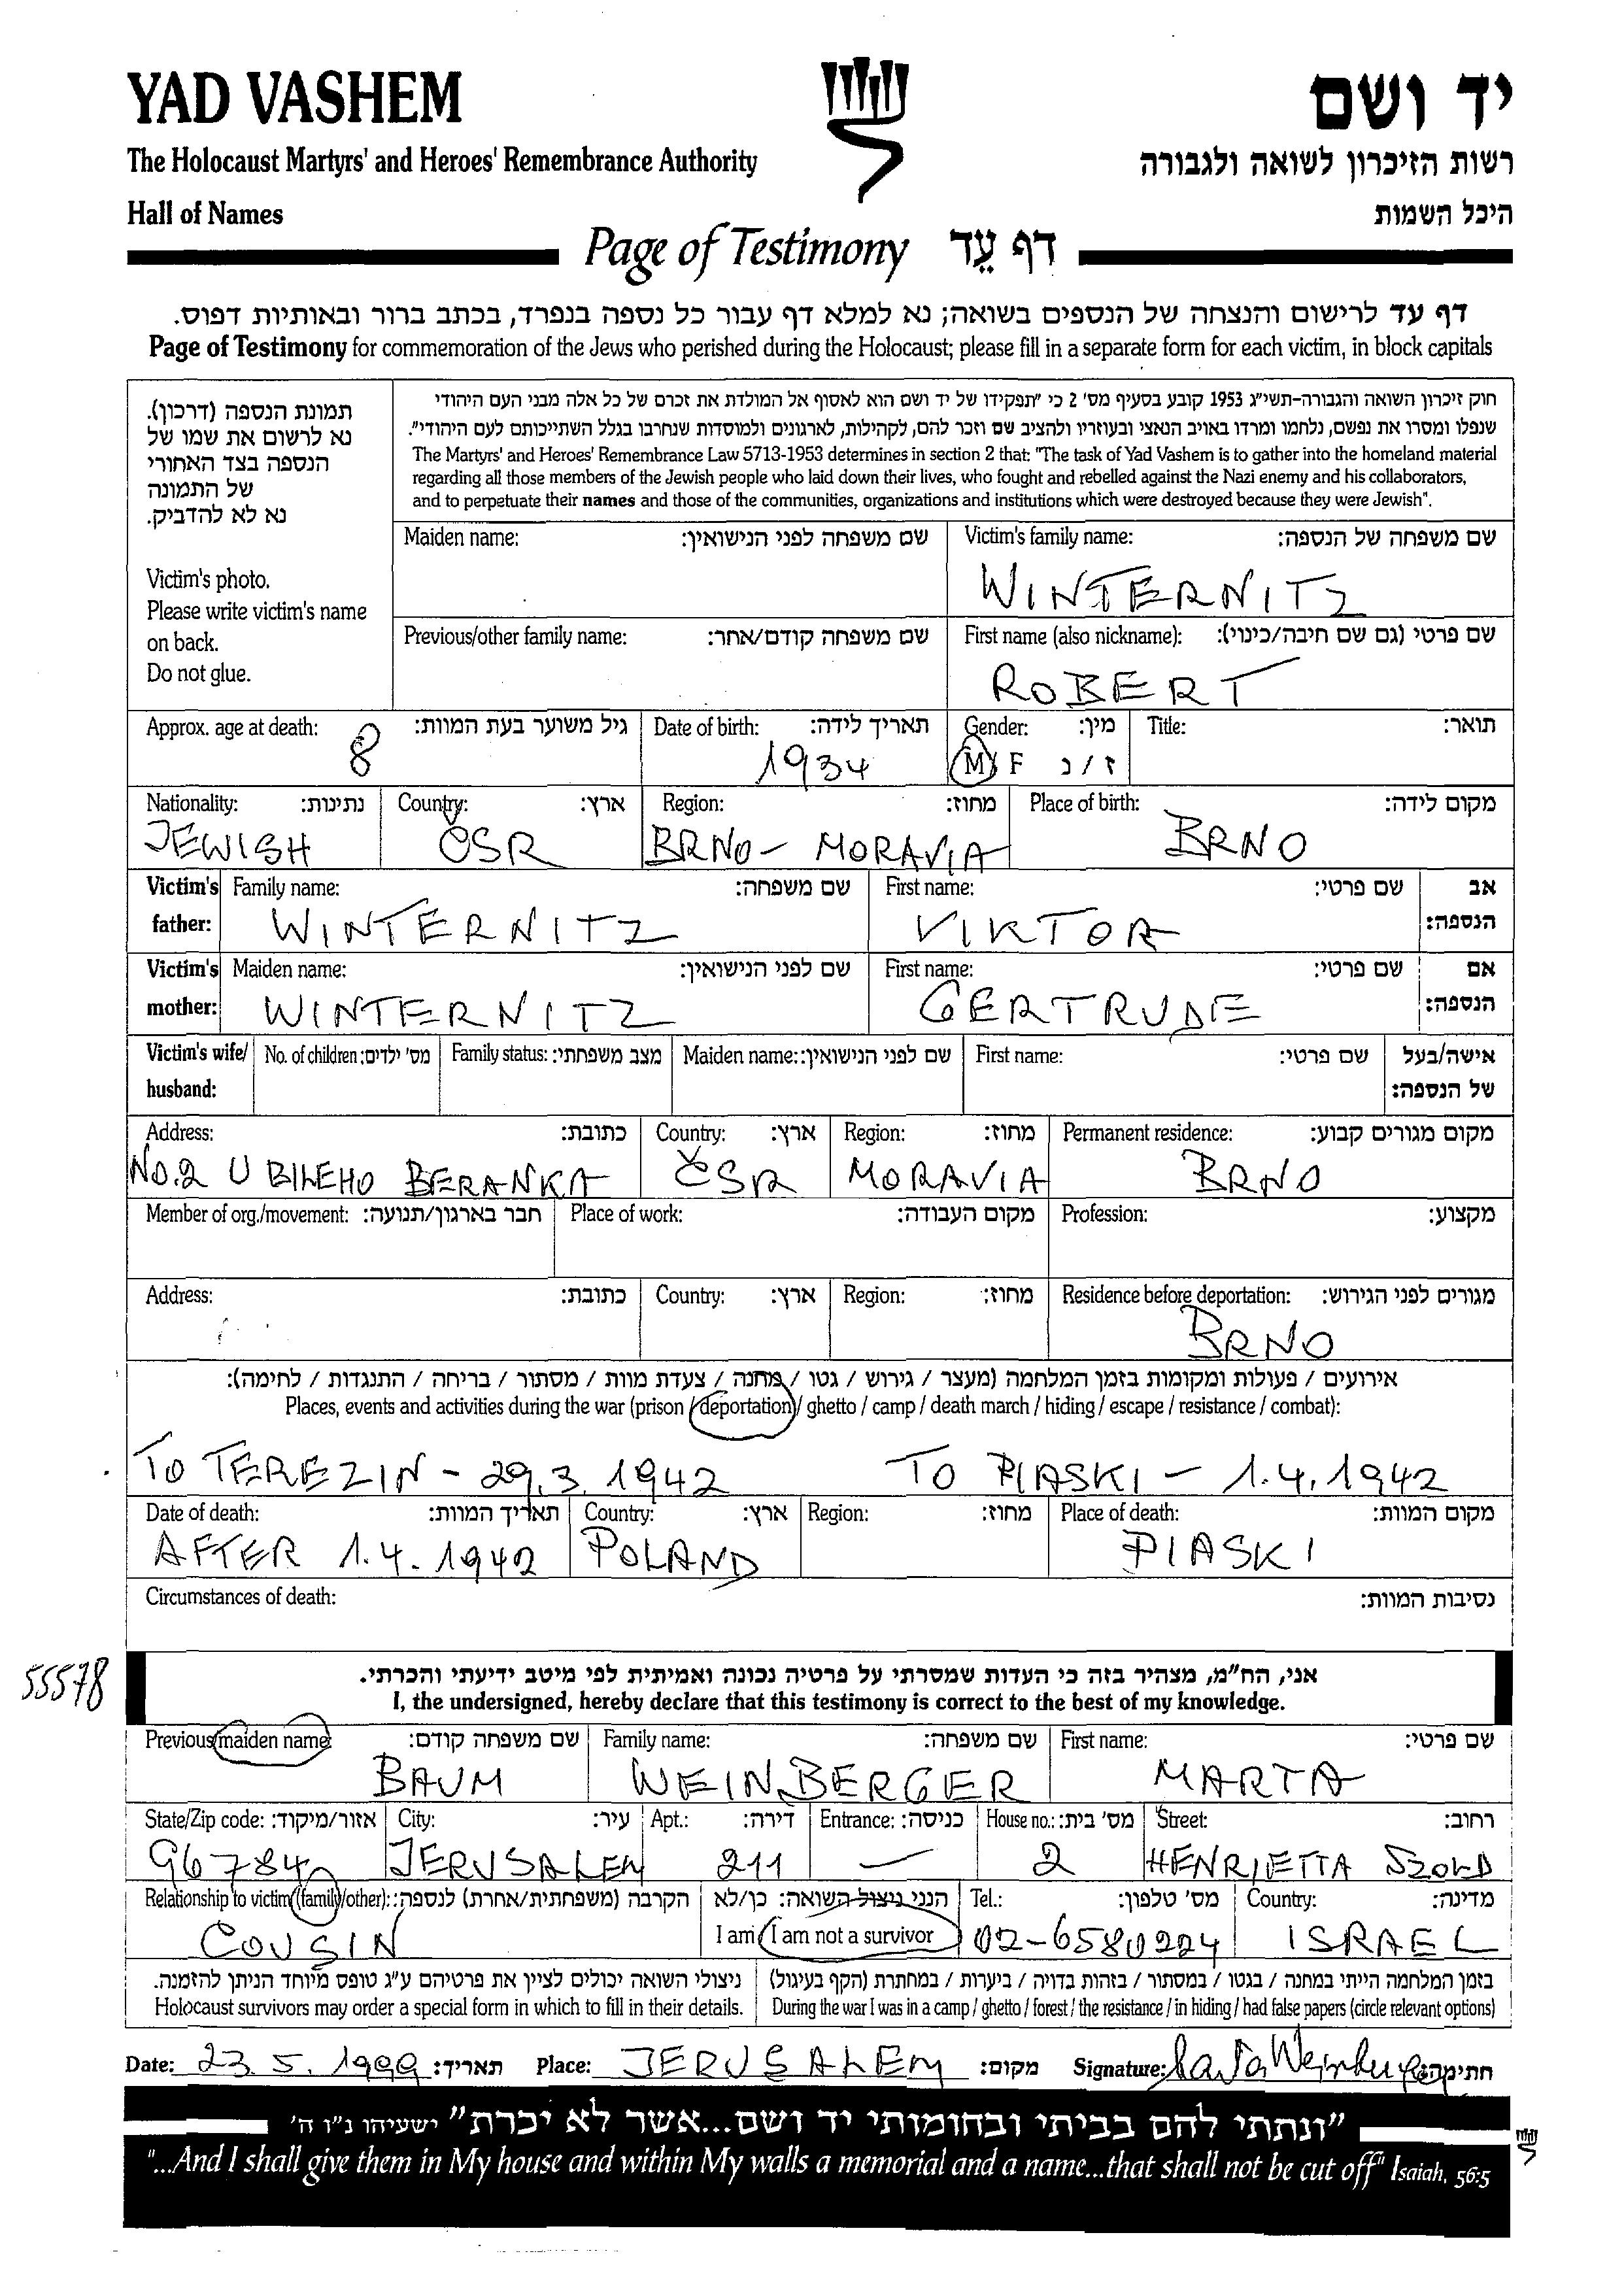 YAD VASHEM
יד ושם
The Holocaust Martyrs' and Heroes' Remembrance Authority
רשות הזיכרון לשואה ולגבורה
Hall of Names
היכל השמות
Page of Testimony דף עֵד
דף עד לרישום והנצחה של הנספים בשואה; נא למלא דף עבור כל נספה בנפרד, בכתב ברור ובאותיות דפוס.
Page of Testimony for commemoration of the Jews who perished during the Holocaust; please fill in a separate form for each victim, in block capitals
תמונת הנספה (דרכון).
נא לרשום את שמו של
הנספה בצד האחורי
של התמונה
נא לא להדביק.
Victim's photo.
Please write victim's name
on back.
Do not glue.
חוק זיכרון השואה והגבורה-תשי"ג 1953 קובע בסעיף מס' 2 כי "תפקידו של יד ושם הוא לאסוף אל המולדת את זכרם של כל אלה מבני העם היהודי
שנפלו ומסרו את נפשם, נלחמו ומרדו באויב הנאצי ובעוזריו ולהציב שם וזכר להם, לקהילות, לארגונים ולמוסדות שנחרבו בגלל השתייכותם לעם היהודי".
The Martyrs' and Heroes' Remembrance Law 5713-1953 determines in section 2 that: "The task of Yad Vashem is to gather into the homeland material
regarding all those members of the Jewish people who laid down their lives, who fought and rebelled against the Nazi enemy and his collaborators,
and to perpetuate their names and those of the communities, organizations and institutions which were destroyed because they were Jewish".
Maiden name: שם משפחה לפני הנישואין: Victim's family name: שם משפחה של הנספה:
WINTERNITZ
Previous/other family name: שם משפחה קודם/אחר: First name (also nickname): שם פרטי (גם שם חיבה/כינוי):
ROBERT
Approx. age at death: גיל משוער בעת המוות: Date of birth: תאריך לידה: Gender: מין: Title: תואר:
8 1934 M F ז / נ
Nationality: נתינות: Country: ארץ: Region: מחוז: Place of birth: מקום לידה:
JEWISH ČSR BRNO - MORAVIA BRNO
Victim's Family name: שם משפחה: First name: שם פרטי: אב
father: WINTERNITZ VIKTOR הנספה:
Victim's Maiden name: שם לפני הנישואין: First name: שם פרטי: אם
mother: WINTERNITZ GERTRUDE הנספה:
Victim's wife/ No. of children: מס' ילדים: Family status: מצב משפחתי: Maiden name: שם לפני הנישואין: First name: שם פרטי: אישה/בעל
husband: של הנספה:
Address: כתובת: Country: ארץ: Region: מחוז: Permanent residence: מקום מגורים קבוע:
NO.2 U BILEHO BERANKA ČSR MORAVIA BRNO
Member of org./movement: חבר בארגון/תנועה: Place of work: מקום העבודה: Profession: מקצוע:
Address: כתובת: Country: ארץ: Region: מחוז: Residence before deportation: מגורים לפני הגירוש:
BRNO
אירועים / פעולות ומקומות בזמן המלחמה (מעצר / גירוש / גטו / מחנה / צעדת מוות / מסתור / בריחה / התנגדות / לחימה):
Places, events and activities during the war (prison / deportation / ghetto / camp / death march / hiding / escape / resistance / combat):
TO TEREZIN - 29.3.1942 TO PIASKI - 1.4.1942
Date of death: תאריך המוות: Country: ארץ: Region: מחוז: Place of death: מקום המוות:
AFTER 1.4.1942 POLAND PIASKI
Circumstances of death: נסיבות המוות:
55578
אני, הח"מ, מצהיר בזה כי העדות שמסרתי על פרטיה נכונה ואמיתית לפי מיטב ידיעתי והכרתי.
I, the undersigned, hereby declare that this testimony is correct to the best of my knowledge.
Previous/maiden name: שם משפחה קודם: Family name: שם משפחה: First name: שם פרטי:
BAUM WEINBERGER MARTA
State/Zip code: אזור/מיקוד: City: עיר: Apt.: דירה: Entrance: כניסה: House no.: מס' בית: Street: רחוב:
96784 JERUSALEM 211 — 2 HENRIETTA SZOLD
Relationship to victim (family/other): הקרבה (משפחתית/אחרת) לנספה: הנני ניצול השואה: כן/לא Tel.: מס' טלפון: Country: מדינה:
COUSIN I am / I am not a survivor 02-6580224 ISRAEL
ניצולי השואה יכולים לציין את פרטיהם ע"ג טופס מיוחד הניתן להזמנה. בזמן המלחמה הייתי במחנה / בגטו / במסתור / בזהות בדויה / ביערות / במחתרת (הקף בעיגול)
Holocaust survivors may order a special form in which to fill in their details. During the war I was in a camp / ghetto / forest / the resistance / in hiding / had false papers (circle relevant options)
Date: 23.5.1999 תאריך: Place: JERUSALEM מקום: Signature: Marta Weinberger חתימה:
"ונתתי להם בביתי ובחומותי יד ושם...אשר לא יכרת" ישעיהו נ"ו ה'
"...And I shall give them in My house and within My walls a memorial and a name...that shall not be cut off" Isaiah, 56:5